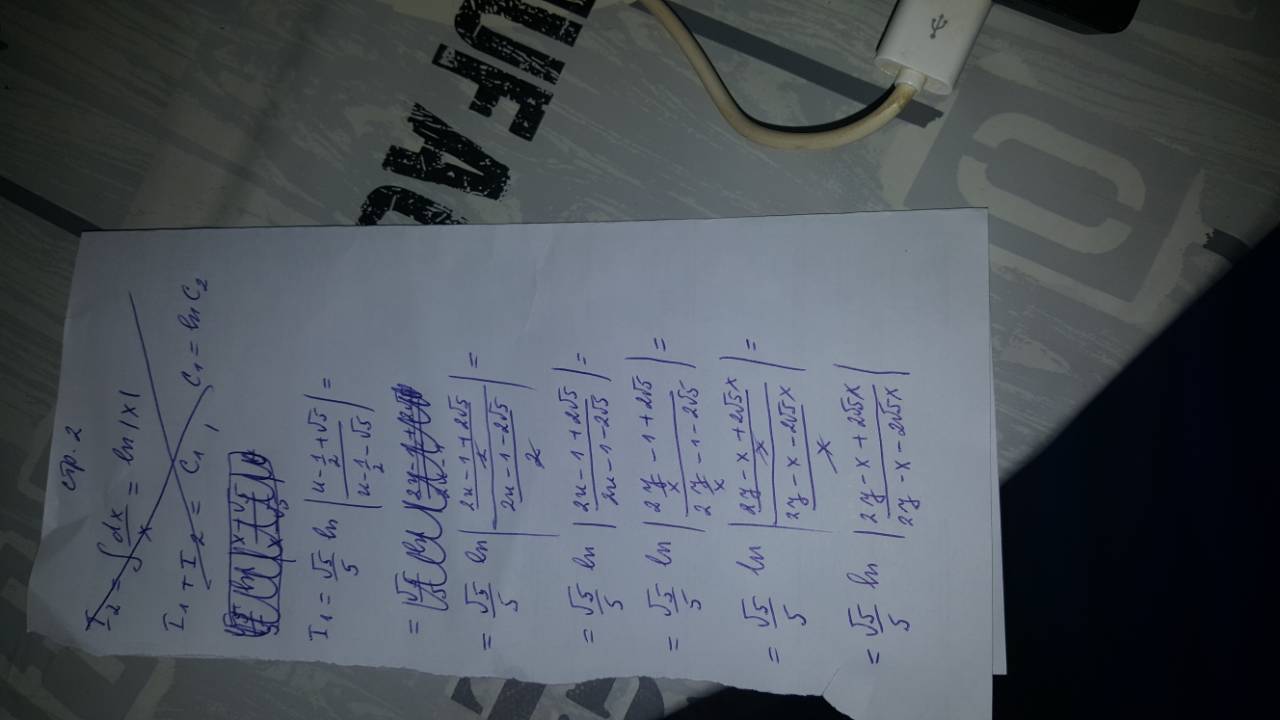 стр. 2
I₂ = ∫ dx/x = ln |x|
I₁ + I₂ = C₁, C₁ = ln C₂
I₁ = √5/5 ln |(u - 1/2 + √5)/(u - 1/2 - √5)| =
= √5/5 ln |((2u - 1 + 2√5)/2)/((2u - 1 - 2√5)/2)| =
= √5/5 ln |(2u - 1 + 2√5)/(2u - 1 - 2√5)| =
= √5/5 ln |(2 y/x - 1 + 2√5)/(2 y/x - 1 - 2√5)| =
= √5/5 ln |((2y - x + 2√5x)/x)/((2y - x - 2√5x)/x)| =
= √5/5 ln |(2y - x + 2√5x)/(2y - x - 2√5x)|
UFAC